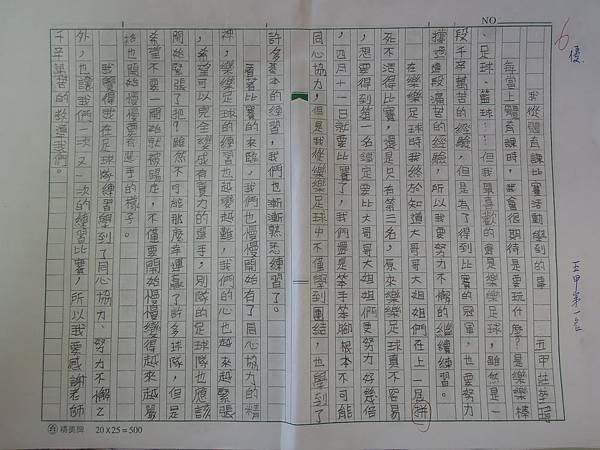 NO.
6 優。
五甲第一名
我從體育課比賽活動學到的事
五甲莊至瑋
每當上體育課時,我會很期待是要玩什麼?是樂樂棒
、足球、籃球……但我最喜歡的還是樂樂足球,雖然是一
段千辛萬苦的經驗,但是為了得到比賽的冠軍,也要努力
撐過這段痛苦的經驗,所以我要努力不懈的繼續練習。
在樂樂足球時我終於知道大哥哥大姐姐們在上一屆拼
死不活得比賽,還是只有第三名,原來樂樂足球真不容易
,想要得到第一名鐵定要比大哥哥大姐姐們更努力好幾倍
,四月十一日就要比賽了,我們還是笨手笨腳根本不可能
同心協力,但是我從樂樂足球中不僅學到團結,也學到了
許多基本的練習,我們也漸漸熟悉練習了。
看著比賽的來臨,我們也慢慢開始有了同心協力的精
神,樂樂足球的練習也越來越難,我們的心也越來越緊張
,希望可以完全變成有實力的選手,別隊的足球隊也應該
開始緊張了把?雖然不可能那麼幸運贏了許多球隊,但是
希望不要一開始就被踢走,不僅要開始慢慢變得越來越厲
拾也開始慢慢要有選手的樣子。
我覺得我在足球隊練習學到了同心協力、努力不懈之
外,也讓我們一次又一次的練習比賽,所以我要感謝老師
千辛萬苦的教導我們。
精美牌 20×25=500